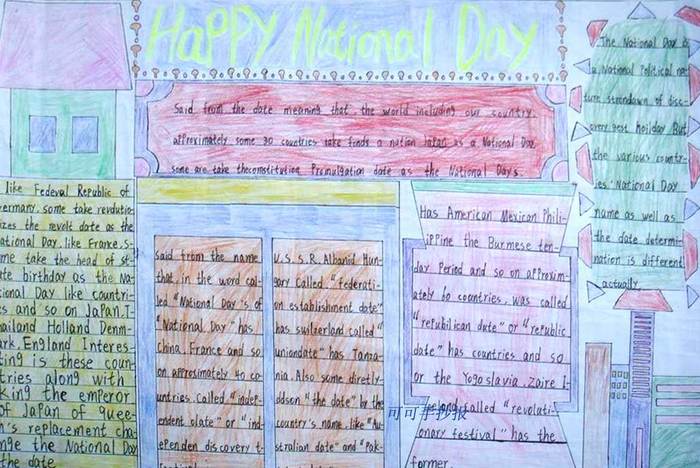 Happy National Day
Said from the date meaning that the world including our country.
approximately some 30 countries take finds a nation Japan as a National Day
some are take theconstitution Promulgation date as the National Day's
The National Day is
a National Political na-
ture strondawn of disc-
every gest holiday But
the various countr-
ies National Day
name as well as
the date determi-
nation is different
actually
like Federal Republic of
ermany. some take revolutio
izes the revolt date as the
ational Day. like France. s
me take the head of st
ate birthday as the Na
tional Day like countri
es and so on Japan. I
hailand Holland Denm-
ark. England Interes-
ting is these coun-
tries along with
king the emperor
of Japan of quee-
n's replacement cha-
nge the National Day
the date
said from the name
that in the word cal-
led "National Day's of
"National Day" has
China France and so
on approximately 40 co-
untries. Called "indep-
endent olate" or "ind
ependen discovery t-
U.S.S.R. Albanid Hun-
gary Called "federati-
on establishment date"
has switzerland called"
uniondate" has Tanza-
nia. Also some diretly
ddson "the date" by the
country's name. like "Au-
stralian date" and "Pak-
Has American Mexican Phili-
ippine the Burmese ten-
day Period and so on approxim-
ately 60 countries. was called
"repubilican dute" or "republic
date" has countries and so
or the Yogoslavia. Zaire I-
reland called "revoluti-
onary festival" has the
former
可可手抄报